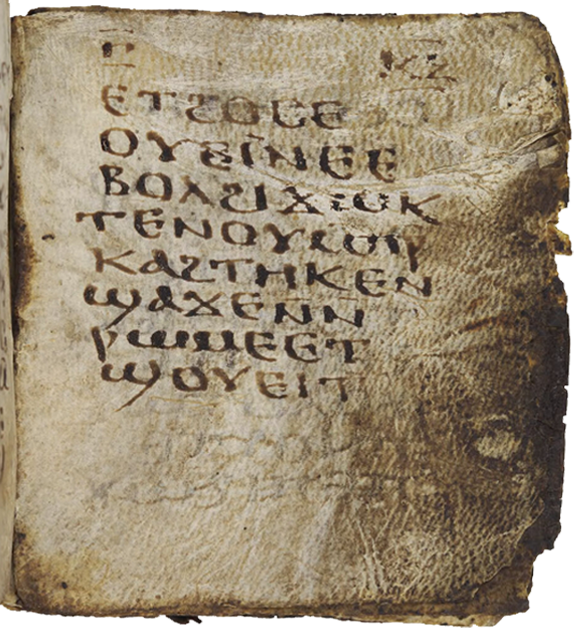 ⲡ̄ ⲕⲍ̄
ⲉⲧϩⲟⲥⲉ
ⲟⲩⲉⲓⲛⲉⲉ
ⲃⲟⲗϩⲓϫⲱⲕ
ⲧⲉⲛⲟⲩⲙⲡⲣ
ⲕⲁϩⲧⲏⲕⲉⲛ
ϣⲁϫⲉⲛⲛ
ⲣⲱⲙⲉⲉⲧ
ϣⲟⲩⲉⲓⲧ